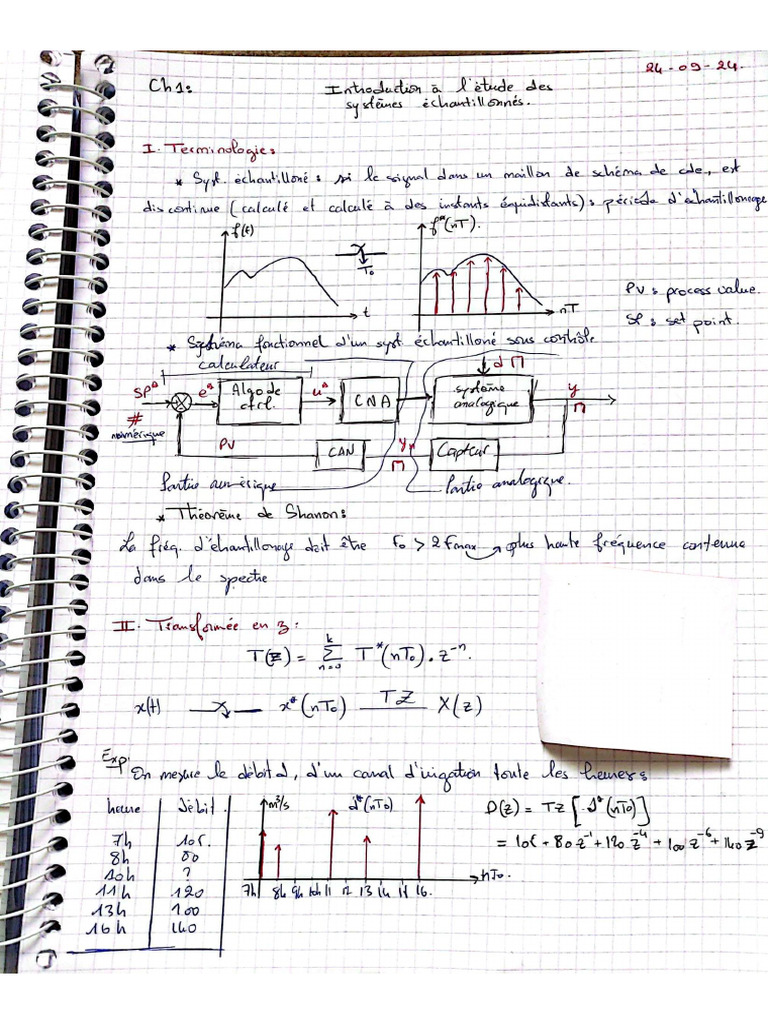 24-09-24.
Ch1: Introduction à l'étude des
systèmes échantillonnés.
I. Terminologie:
* Syst. échantilloné: si le signal dans un maillon de schéma de cde, est
discontinue (calculé et calculé à des instants équidistants): période d'échantillonage
f(t)
T₀
t
f*(nT).
nT
PV: process value.
SP: set point.
* Systéma fonctionnel d'un syst. échantilloné sous contrôle
calculateur
SP*
#
numérique
e*
Algo de
ctrl.
u*
CNA
d
système
analogique
y
PV
CAN
Capteur
Partie numérique
Partie analogique.
* Théorème de Shanon:
La fréq. d'échantillonage doit être F₀ > 2 Fmax → plus haute fréquence contenue
dans le spectre
II. Transformée en z:
T(z) = Σ T*(nT₀). z⁻ⁿ.
k
n=0
x(t) x*(nT₀) TZ X(z)
Exp:
On mesure le débit d, d'un canal d'irigation toute les heures
heure débit.
7h 105.
8h 80
10h ?
11h 120
13h 100
16h 140
m³/s
d*(nT₀)
7h 8h 9h 10h 11 12 13 14 15 16.
nT₀.
D(z) = TZ [d*(nT₀)]
= 105 + 80z⁻¹ + 120z⁻⁴ + 100z⁻⁶ + 140z⁻⁹